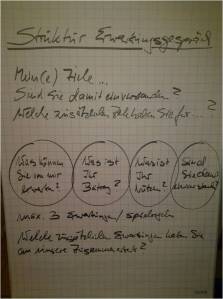 Struktur Erwartungsgespräch
Mein(e) Ziele...
Sind Sie damit einverstanden?
Welche zusätzlichen Ziele haben Sie für ...?
Was können Sie von mir erwarten?
Was ist Ihr Beitrag?
Was ist Ihr Nutzen?
Sind Sie einverstanden?
max. 3 Erwartungen/
Welche zusätzlichen Erwartungen haben Sie
an unsere Zusammenarbeit?